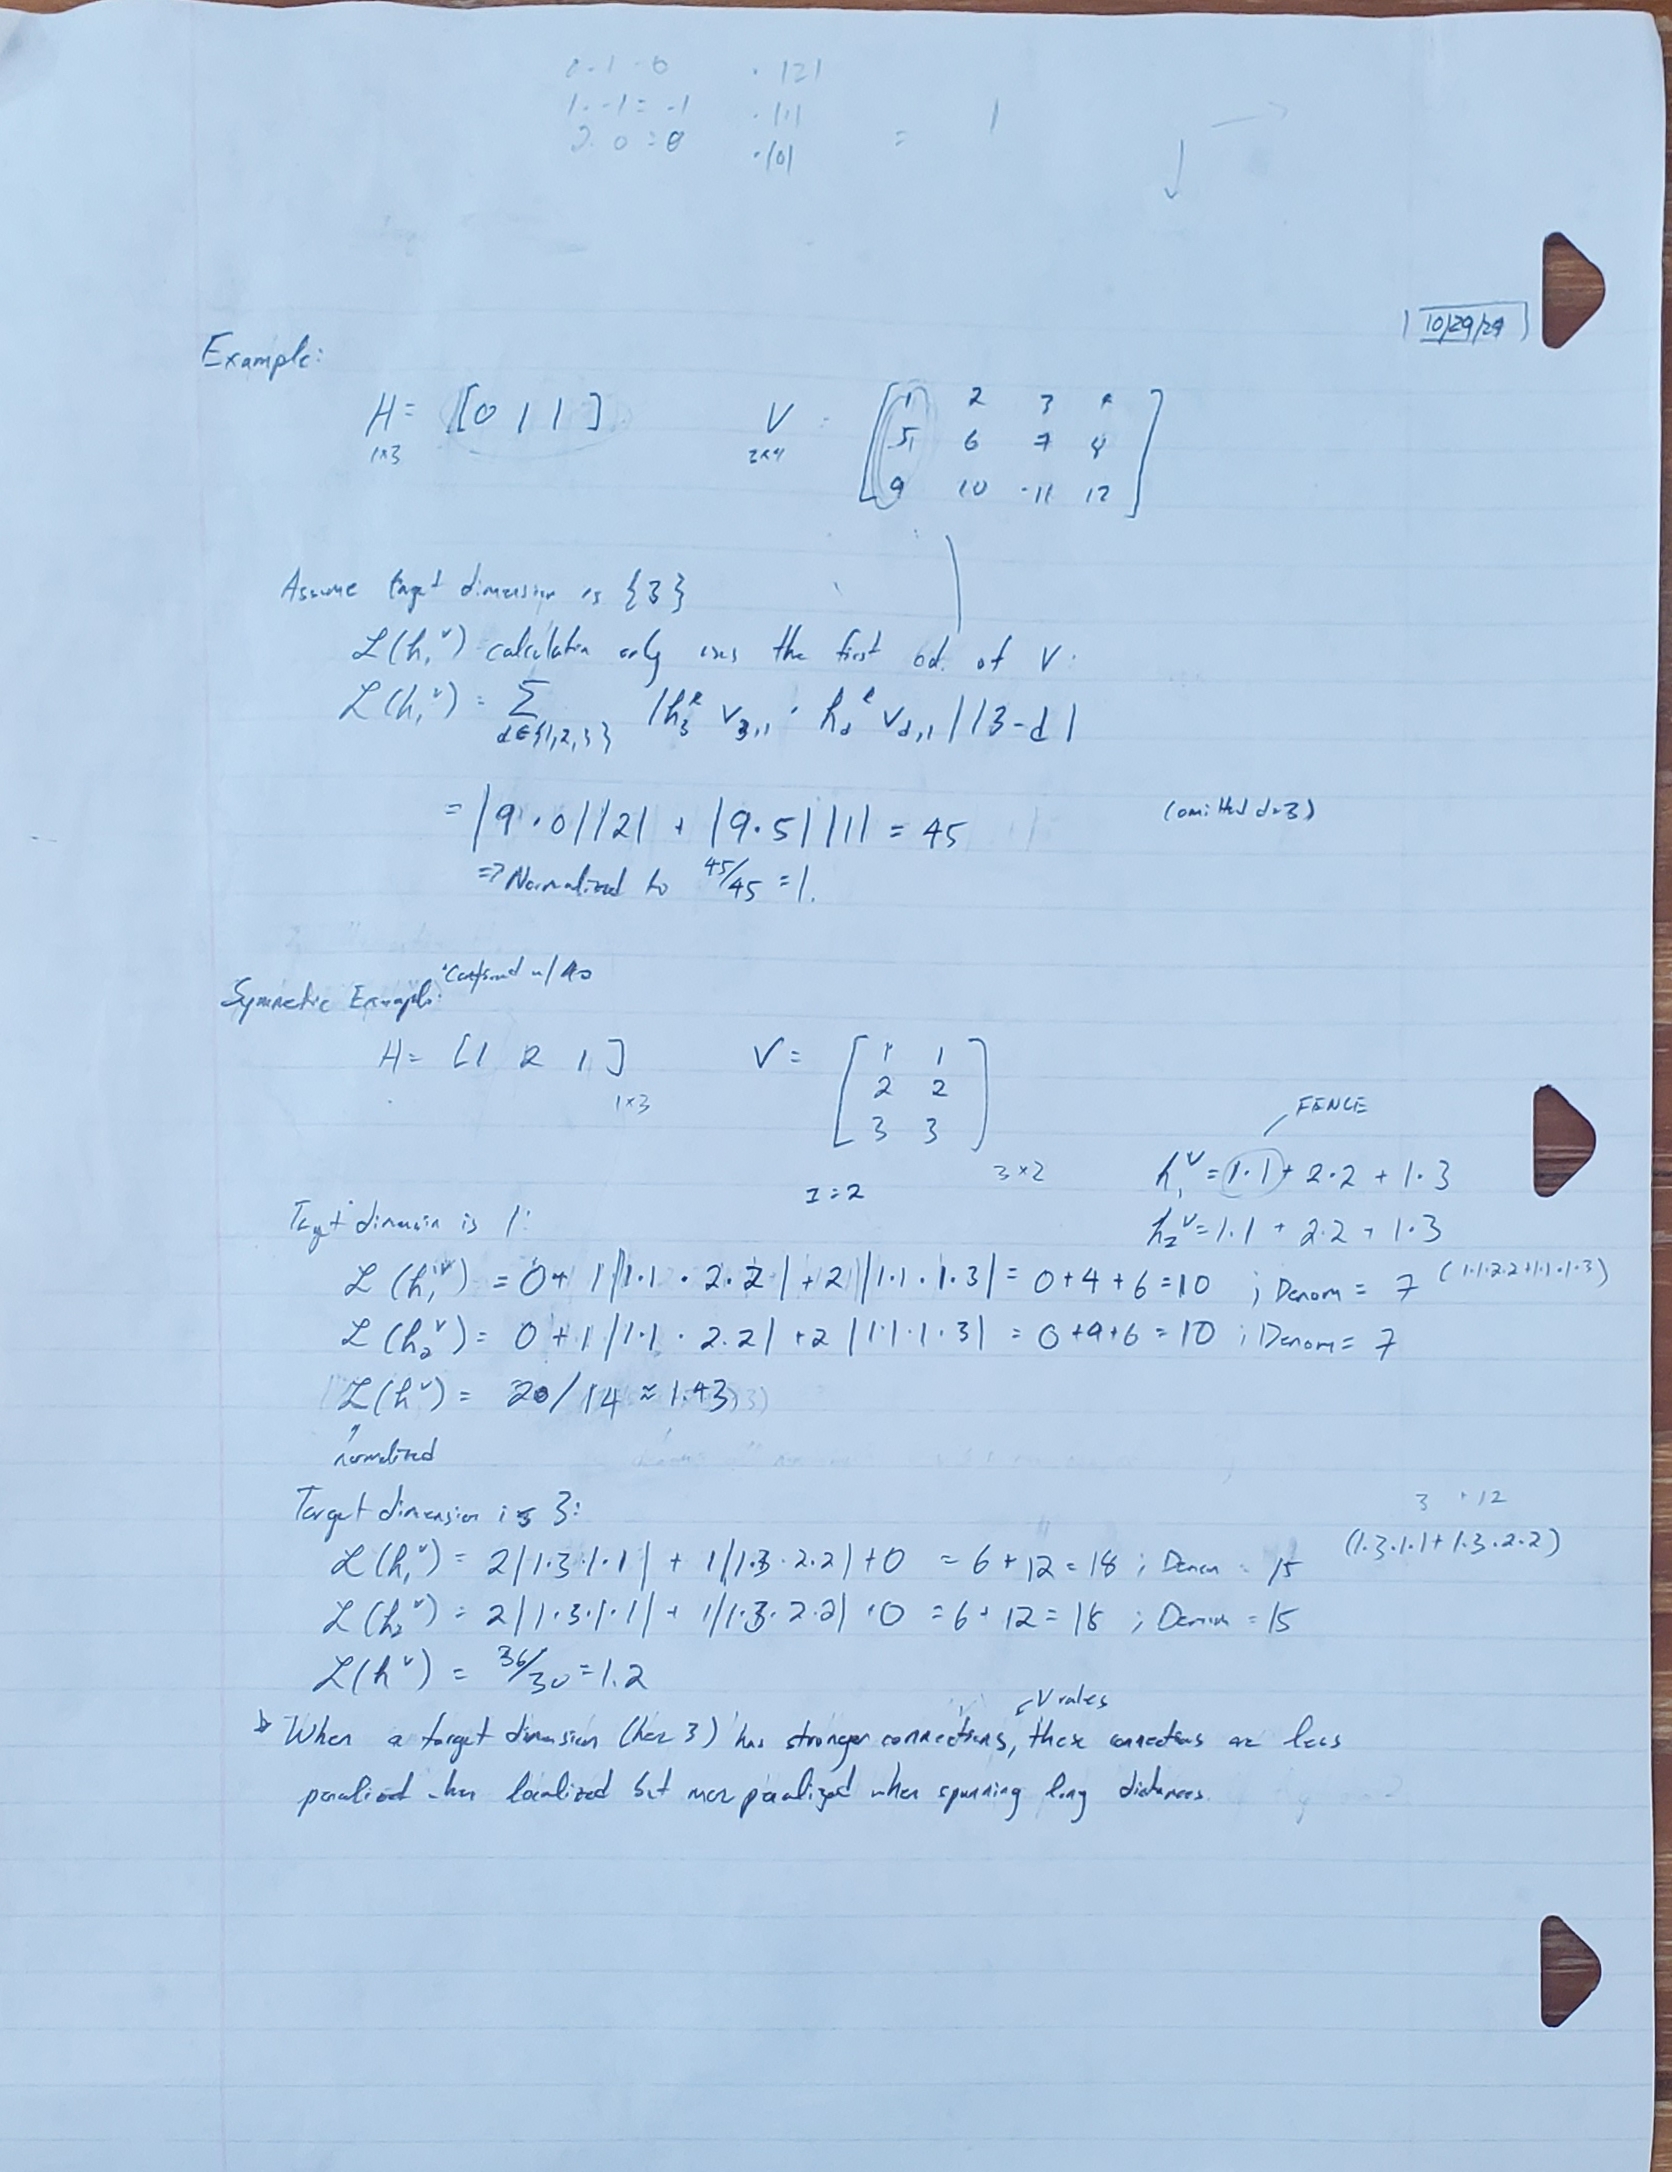 2·1·0 ·|2|
1·-1 = -1 ·|1|
2·0 = 0 ·|0| = 1
10/29/24
Example:
H = [0 1 1] V = [1 2 3 4
1×3 5 6 7 8
9 10 11 12]
Assume target dimension is {3}
ℒ(h₁ᵛ) calculation only uses the first col. of V:
ℒ(h₁ᵛ) = Σ |h₃ v₃,₁ · h_d v_d,₁||3-d|
d∈{1,2,3}
= |9·0||2| + |9·5||1| = 45 (omitted d=3)
⇒ Normalized to 45/45 = 1.
Symmetric Example: Confirmed w/
H = [1 2 1] V = [1 1
1×3 2 2
3 3]
3×2
I=2
FENCE
h₁ᵛ = 1·1 + 2·2 + 1·3
h₂ᵛ = 1·1 + 2·2 + 1·3
Target dimension is 1:
ℒ(h₁ᵛ) = 0 + 1|1·1 · 2·2| + 2|1·1·1·3| = 0+4+6 = 10 ; Denom = 7 (1·1·2·2+1·1·1·3)
ℒ(h₂ᵛ) = 0 + 1|1·1 · 2·2| + 2|1·1·1·3| = 0+4+6 = 10 ; Denom = 7
ℒ(hᵛ) = 20/14 ≈ 1.43
normalized
Target dimension is 3:
3 + 12
(1·3·1·1 + 1·3·2·2)
ℒ(h₁ᵛ) = 2|1·3·1·1| + 1|1·3·2·2| + 0 = 6 + 12 = 18 ; Denom = 15
ℒ(h₂ᵛ) = 2|1·3·1·1| + 1|1·3·2·2| + 0 = 6 + 12 = 18 ; Denom = 15
ℒ(hᵛ) = 36/30 = 1.2
V
When a target dimension (here 3) has stronger connections, these connections are less
penalized when localized but more penalized when spanning long distances.